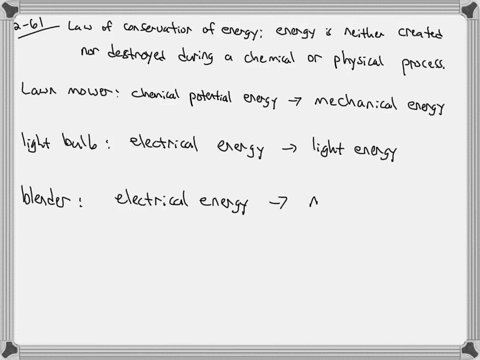 2-61 Law of conservation of energy: energy is neither created
nor destroyed during a chemical or physical process.
Lawn mower: chemical potential energy → mechanical energy
light bulb: electrical energy → light energy
blender: electrical energy →